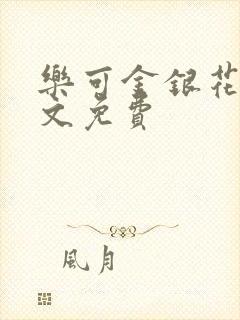 樂可金銀花
文免費
風月